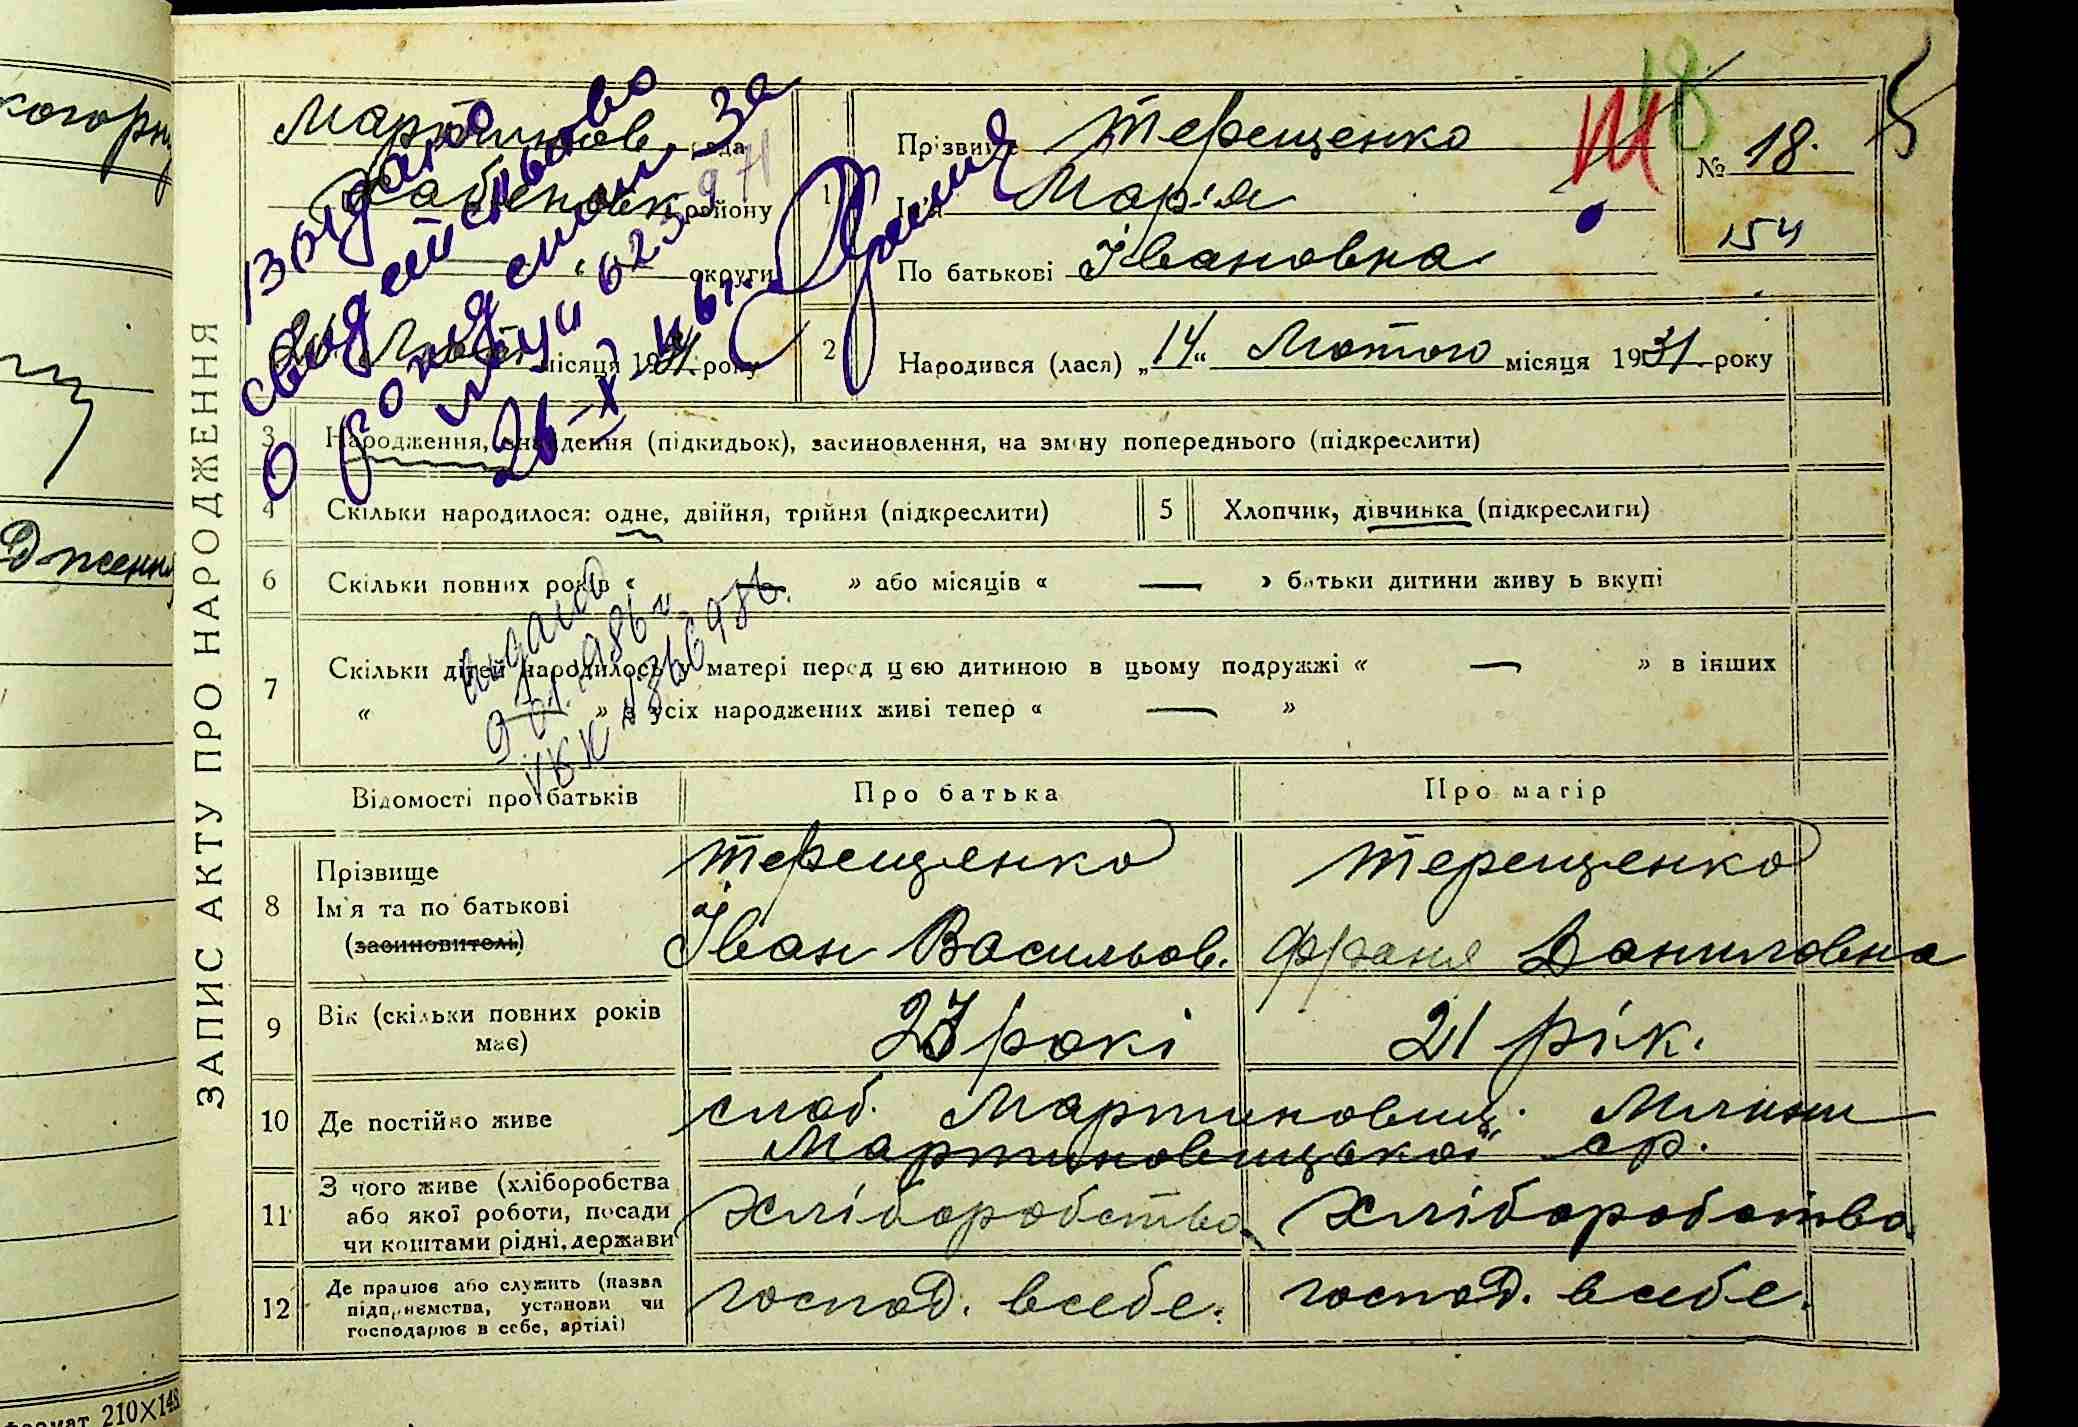 ЗАПИС АКТУ ПРО НАРОДЖЕННЯ
Мартинов. рада
Хабенськ району
округи
місяця 1931 року
Видано
свидетельство
о рождении за
26-X
Прізвище Терещенко
1 Ім'я Марія
По батькові Івановна
№ 18.
154
18
2 Народився (лася) „14“ Лютого місяця 1931 року
3 Народження, знайдення (підкидьок), засиновлення, на зміну попереднього (підкреслити)
4 Скільки народилося: одне, двійня, трійня (підкреслити)
5 Хлопчик, дівчинка (підкреслити)
6 Скільки повних років « — » або місяців « — » батьки дитини живуть вкупі
7 Скільки дітей народилось у матері перед цією дитиною в цьому подружжі « — » в інших
« — » з усіх народжених живі тепер « — »
Відомості про батьків Про батька Про матір
8 Прізвище
Ім'я та по батькові
(засиновителі)
Терещенко
Іван Васильов.
Терещенко
Франя Даниловна
9 Вік (скільки повних років має) 23 рокі 21 рік.
10 Де постійно живе слоб. Мартиновиц. Млини
Мартиновицької ср.
11 З чого живе (хліборобства
або якої роботи, посади
чи коштами рідні, держави
Хліборобство Хліборобство
12 Де працює або служить (назва
підприємства, установи чи
господарює в себе, артілі)
господ. всебе. господ. всебе.
формат 210×148